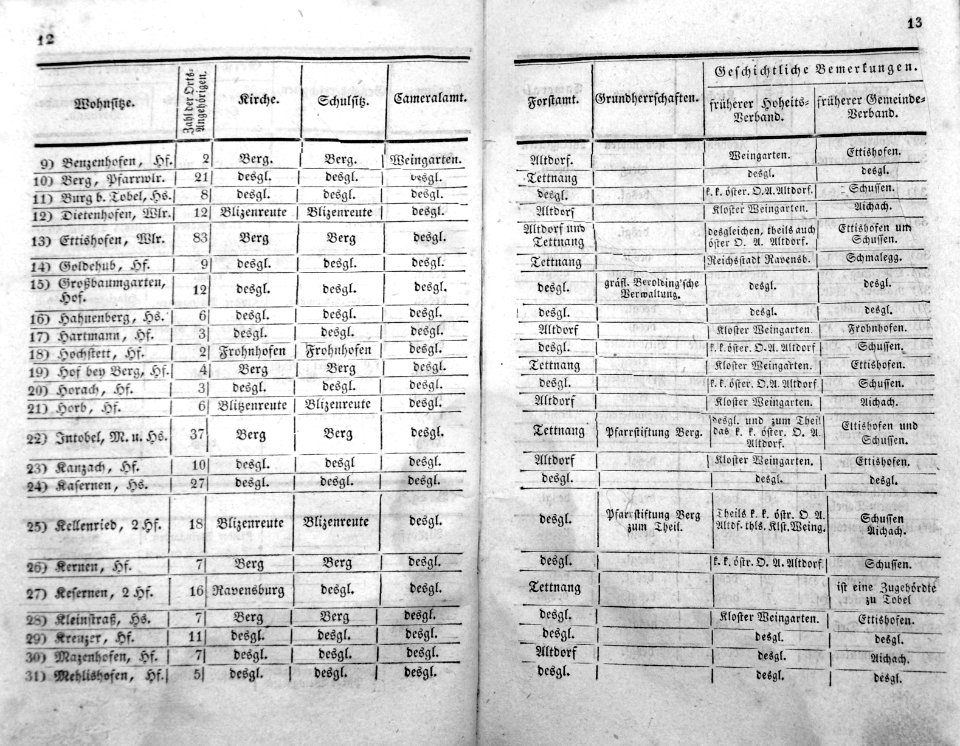 12
Wohnsitze.
Zahl der Orts-
Angehörigen.
Kirche.
Schulsitz.
Cameralamt.
9) Benzenhofen, Hf. 2 Berg. Berg. Weingarten.
10) Berg, Pfarrwlr. 21 desgl. desgl. desgl.
11) Burg b. Tobel, Hs. 8 desgl. desgl. desgl.
12) Dietenhofen, Wlr. 12 Blizenreute Blizenreute desgl.
13) Ettishofen, Wlr. 83 Berg Berg desgl.
14) Goldehub, Hf. 9 desgl. desgl. desgl.
15) Großbaumgarten,
Hof. 12 desgl. desgl. desgl.
16) Hahnenberg, Hs. 6 desgl. desgl. desgl.
17) Hartmann, Hf. 3 desgl. desgl. desgl.
18) Hochstett, Hf. 2 Frohnhofen Frohnhofen desgl.
19) Hof bey Berg, Hf. 4 Berg Berg desgl.
20) Horach, Hf. 3 desgl. desgl. desgl.
21) Horb, Hf. 6 Blitzenreute Blizenreute desgl.
22) Intobel, M. u. Hs. 37 Berg Berg desgl.
23) Kanzach, Hf. 10 desgl. desgl desgl.
24) Kasernen, Hs. 27 desgl. desgl. desgl.
25) Kellenried, 2 Hf. 18 Blizenreute Blizenreute desgl.
26) Kernen, Hf. 7 Berg Berg desgl.
27) Kesernen, 2 Hf. 16 Ravensburg desgl. desgl.
28) Kleinstraß, Hs. 7 Berg Berg desgl.
29) Kreuzer, Hf. 11 desgl. desgl. desgl.
30) Mazenhofen, Hf. 7 desgl. desgl. desgl.
31) Mehlishofen, Hf. 5 desgl. desgl. desgl.
13
Forstamt.
Grundherrschaften.
Geschichtliche Bemerkungen.
früherer Hoheits-
Verband.
früherer Gemeinde-
Verband.
Altdorf. Weingarten. Ettishofen.
Tettnang desgl. desgl.
desgl. k. k. öster. O. A. Altdorf. Schussen.
Altdorf Kloster Weingarten. Aichach.
Altdorf und desgleichen, theils auch Ettishofen und
Tettnang öster O. A. Altdorf. Schussen.
Tettnang Reichsstadt Ravensb. Schmalegg.
desgl. gräfl. Berolding'sche desgl. desgl.
Verwaltung.
desgl. desgl. desgl.
Altdorf Kloster Weingarten. Frohnhofen.
desgl. k. k. öster. O. A. Altdorf Schussen.
Tettnang Kloster Weingarten. Ettishofen.
desgl. k. k. öster. O. A. Altdorf Schussen.
Altdorf Kloster Weingarten. Aichach.
Tettnang Pfarrstiftung Berg. desgl. und zum Theil Ettishofen und
das k. k. öster. O. A. Schussen.
Altdorf.
Altdorf Kloster Weingarten. Ettishofen.
desgl. desgl. desgl.
desgl. Pfarrstiftung Berg Theils k. k. östr. O. A. Schussen
zum Theil. Altdf. thls. Klst. Weing. Aichach.
desgl. k. k. östr. O. A. Altdorf. Schussen.
Tettnang ist eine Zugehördte
zu Tobel
desgl. Kloster Weingarten. Ettishofen.
desgl. desgl. desgl.
Altdorf desgl. Aichach.
desgl. desgl. desgl.